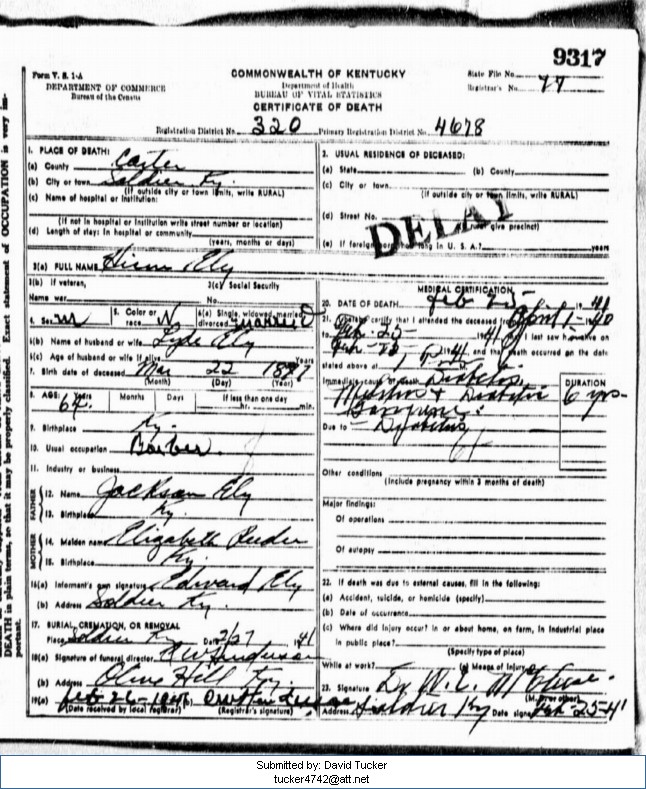 9317
Form V. S. 1-A
DEPARTMENT OF COMMERCE
Bureau of the Census
COMMONWEALTH OF KENTUCKY
Department of Health
BUREAU OF VITAL STATISTICS
CERTIFICATE OF DEATH
State File No.
Registrar's No. 77
Registration District No. 320 Primary Registration District No. 4678
DEATH in plain terms, so that it may be properly classified. Exact statement of OCCUPATION is very important.
1. PLACE OF DEATH:
(a) County Carter
(b) City or town Soldier Ky.
(If outside city or town limits, write RURAL)
(c) Name of hospital or institution:
(If not in hospital or institution write street number or location)
(d) Length of stay: in hospital or community
(years, months or days)
2. USUAL RESIDENCE OF DECEASED:
(a) State (b) County
(c) City or town
(If outside city or town limits, write RURAL)
(d) Street No.
(If rural give precinct)
(e) If foreign born, how long in U. S. A.? years
DELAY
3(a) FULL NAME Ely
3(b) If veteran, 3(c) Social Security
Name war No.
4. Sex M 5. Color or race W 6(a) Single, widowed, married, divorced Married
6(b) Name of husband or wife Ely
6(c) Age of husband or wife if alive Years
7. Birth date of deceased Mar 22
(Month) (Day) (Year)
8. AGE: Years 64 Months Days If less than one day
hr. min.
9. Birthplace Ky.
10. Usual occupation Barber
11. Industry or business
FATHER
12. Name Jackson Ely
13. Birthplace Ky.
MOTHER
14. Maiden name Elizabeth
15. Birthplace Ky.
16(a) Informant's own signature Edward Ely
(b) Address Soldier Ky.
17. BURIAL, CREMATION, OR REMOVAL
Place Soldier Ky Date 2/27 1941
18(a) Signature of funeral director
(b) Address Olive Hill Ky.
19(a) Feb 26-1941 (b)
(Date received by local registrar) (Registrar's signature)
MEDICAL CERTIFICATION
20. DATE OF DEATH Feb 25 1941
21. I hereby certify that I attended the deceased from April 1- 1940
Feb. 25- 1941 I last saw h alive on
Feb- 1941 and that death occurred on the date
stated above at M.
Immediate cause of death Diabetes
& Diabetic
Gangrene
DURATION
6 yrs-
Due to - Diabetes
Other conditions
(Include pregnancy within 3 months of death)
Major findings:
Of operations
Of autopsy
22. If death was due to external causes, fill in the following:
(a) Accident, suicide, or homicide (specify)
(b) Date of occurrence
(c) Where did injury occur? in or about home, on farm, in industrial place
in public place?
(Specify type of place)
While at work? (e) Means of injury
23. Signature Dr.
(M. D. or other)
Address Soldier Ky Date signed Feb. 25-41
Submitted by: David Tucker
tucker4742@att.net